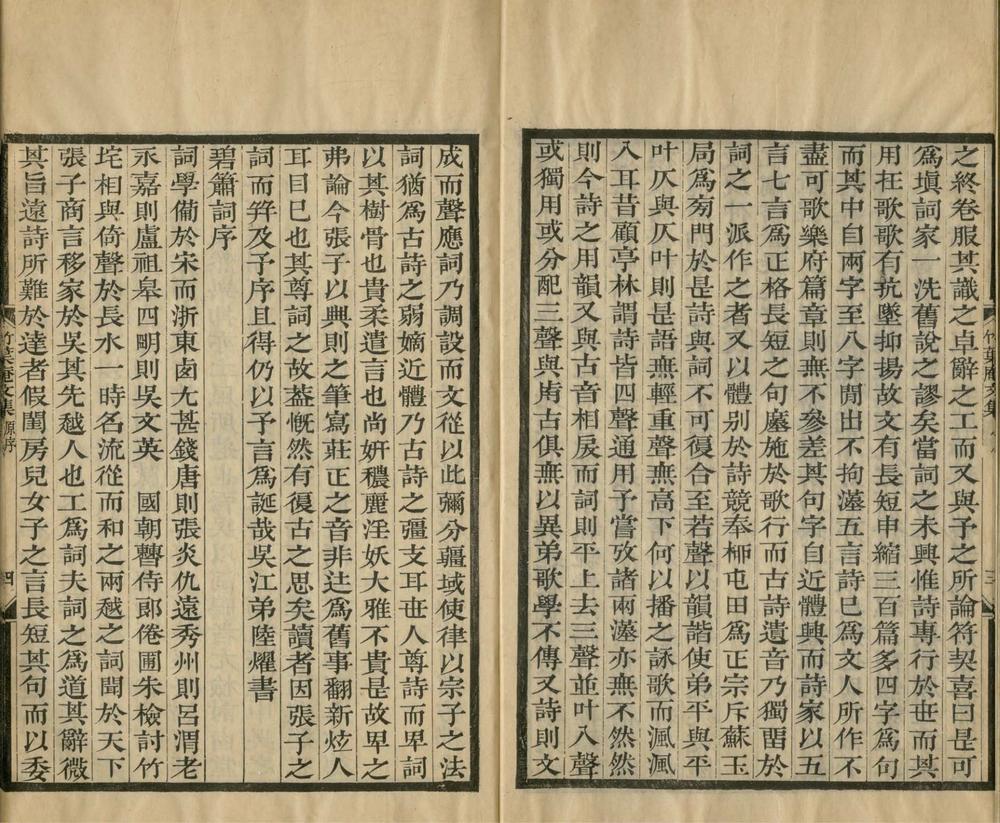 之終卷服其識之卓辭之工而又與予之所論符契喜曰是可
爲塡詞家一洗舊說之謬矣當詞之未興惟詩專行於世而其
用在歌歌有抗墜抑揚故文有長短申縮三百篇多四字爲句
而其中自兩字至八字閒出不拘漢五言詩已爲文人所作不
盡可歌樂府篇章則無不參差其句字自近體興而詩家以五
言七言爲正格長短之句廑施於歌行而古詩遺音乃獨畱於
詞之一派作之者又以體别於詩競奉柳屯田爲正宗斥蘇玉
局爲旁門於是詩與詞不可復合至若聲以韻諧使弟平與平
叶仄與仄叶則是語無輕重聲無高下何以播之詠歌而渢渢
入耳昔顧亭林謂詩皆四聲通用予嘗攷諸兩漢亦無不然然
則今詩之用韻又與古音相戾而詞則平上去三聲並叶入聲
或獨用或分配三聲與歬古俱無以異弟歌學不傳又詩則文
成而聲應詞乃調設而文從以此彌分疆域使律以宗子之法
詞猶爲古詩之弱嫡近體乃古詩之彊支耳世人尊詩而卑詞
以其樹骨也貴柔遣言也尚妍穠麗淫妖大雅不貴是故卑之
弗論今張子以興則之筆寫莊正之音非徒爲舊事翻新炫人
耳目已也其尊詞之故蓋慨然有復古之思矣讀者因張子之
詞而并及予序且得仍以予言爲誕哉吳江弟陸燿書
碧簫詞序
詞學備於宋而浙東西尤甚錢唐則張炎仇遠秀州則呂渭老
永嘉則盧祖皋四明則吳文英 國朝曹侍郎倦圃朱檢討竹
垞相與倚聲於長水一時名流從而和之兩越之詞聞於天下
張子商言移家於吳其先越人也工爲詞夫詞之爲道其辭微
其旨遠詩所難於達者假閨房兒女子之言長短其句而以委
竹葉庵文集 原序 四
竹葉庵文集 三